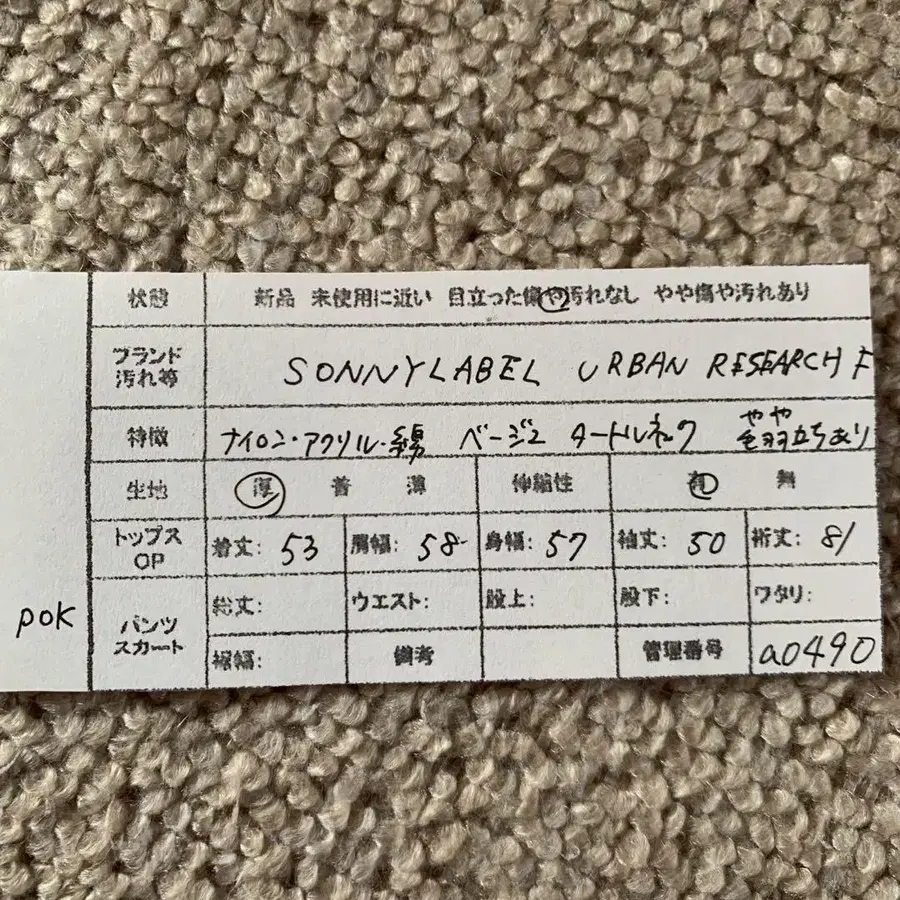 状態 新品 未使用に近い 目立った傷や汚れなし やや傷や汚れあり
ブランド
汚れ等 SONNYLABEL URBAN RESEARCH F
やや
特徴 ナイロン・アクリル・綿 ベージュ タートルネック 毛羽立ちあり
生地 厚 普 薄 伸縮性 有 無
トップス
OP 着丈: 53 肩幅: 58 身幅: 57 袖丈: 50 裄丈: 81
総丈: ウエスト: 股上: 股下: ワタリ:
pok パンツ
スカート
裾幅: 備考 管理番号 a0490